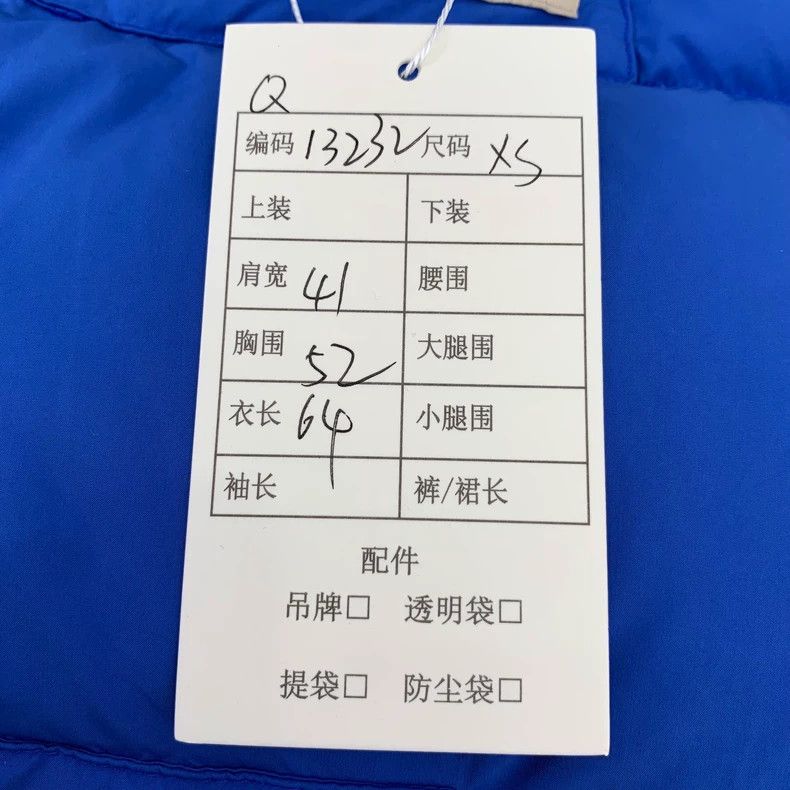 Q
编码 13232 尺码 XS
上装 下装
肩宽 41 腰围
胸围 52 大腿围
衣长 64 小腿围
袖长 裤/裙长
配件
吊牌□ 透明袋□
提袋□ 防尘袋□